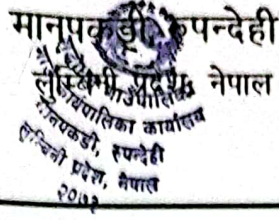 मानपकडी, रुपन्देही
लुम्बिनी प्रदेश, नेपाल
गाउँपालिका
कार्यपालिका कार्यालय
मानपकडी, रुपन्देही
लुम्बिनी प्रदेश, नेपाल
२०७३